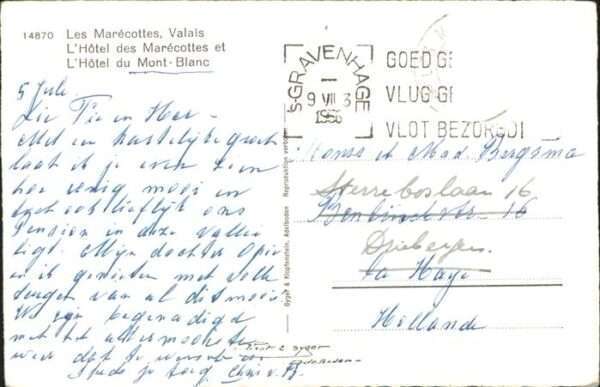 14870 Les Marécottes, Valais
L'Hôtel des Marécottes et
L'Hôtel du Mont-Blanc
5 Juli.
Lie Tie en Her -
Met een hartelijke groet
laat ik je even zien
hoe enig mooi en
ook lieflijk ons
pension in deze vallei
ligt. Mijn dochter
en ik genieten met volle
teugen van al dit moois
We zijn begenadigd
met het allermooiste
weer dat je wensen
's-GRAVENHAGE
9 VII 3
1956
GOED GE
VLUG GE
VLOT BEZORGD!
Gyger & Klopfenstein, Adelboden Reproduktion verboten
Mons et Mad. Bergsma
Sterreboslaan 16
16
Driebergen
La Haye
Hollande